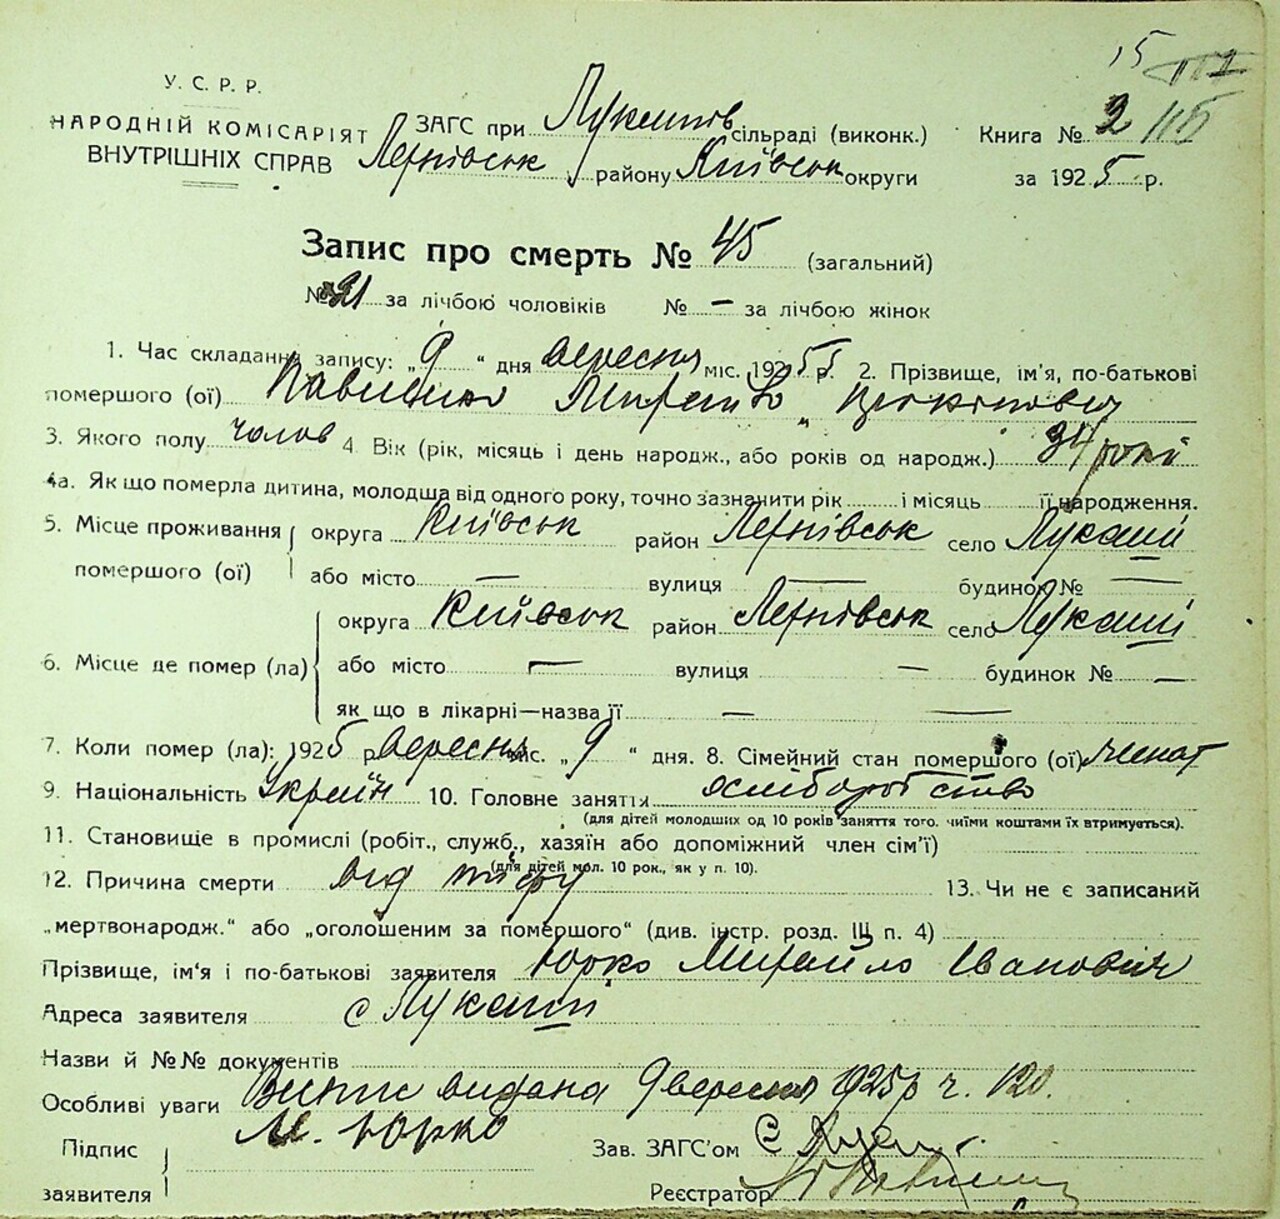 15
У. С. Р. Р.
НАРОДНІЙ КОМІСАРІЯТ
ВНУТРІШНІХ СПРАВ
ЗАГС при Лукашів сільраді (виконк.)
Книга № 2 115
району Київськ округи
за 1925 р.
Запис про смерть № 45 (загальний)
№ 21 за лічбою чоловіків № — за лічбою жінок
1. Час складання запису: „9“ дня вересня міс. 1925 р. 2. Прізвище, ім'я, по-батькові
помершого (ої)
3. Якого полу чолов 4. Вік (рік, місяць і день народж., або років од народж.) 34 роки
4а. Як що померла дитина, молодша від одного року, точно зазначити рік і місяць її народження.
5. Місце проживання помершого (ої) округа Київськ район село Лукаші
або місто — вулиця — будинок № —
6. Місце де помер (ла) округа Київськ район село Лукаші
або місто — вулиця — будинок № —
як що в лікарні—назва її — —
7. Коли помер (ла): 1925 р вересня міс. „9“ дня. 8. Сімейний стан помершого (ої) женат
9. Національність Україн 10. Головне заняття
(для дітей молодших од 10 років заняття того. чиїми коштами їх втримується).
11. Становище в промислі (робіт., служб., хазяїн або допоміжний член сім'ї)
(для дітей мол. 10 рок., як у п. 10).
12. Причина смерти від тифу 13. Чи не є записаний
„мертвонародж.“ або „оголошеним за помершого“ (див. інстр. розд. III п. 4)
Прізвище, ім'я і по-батькові заявителя Юрко Михайло Іванович
Адреса заявителя с Лукаші
Назви й №№ документів
Особливі уваги Випис видана 9 вересня 1925 р ч. 120.
Підпис заявителя М. Юрко
Зав. ЗАГС'ом
Реєстратор